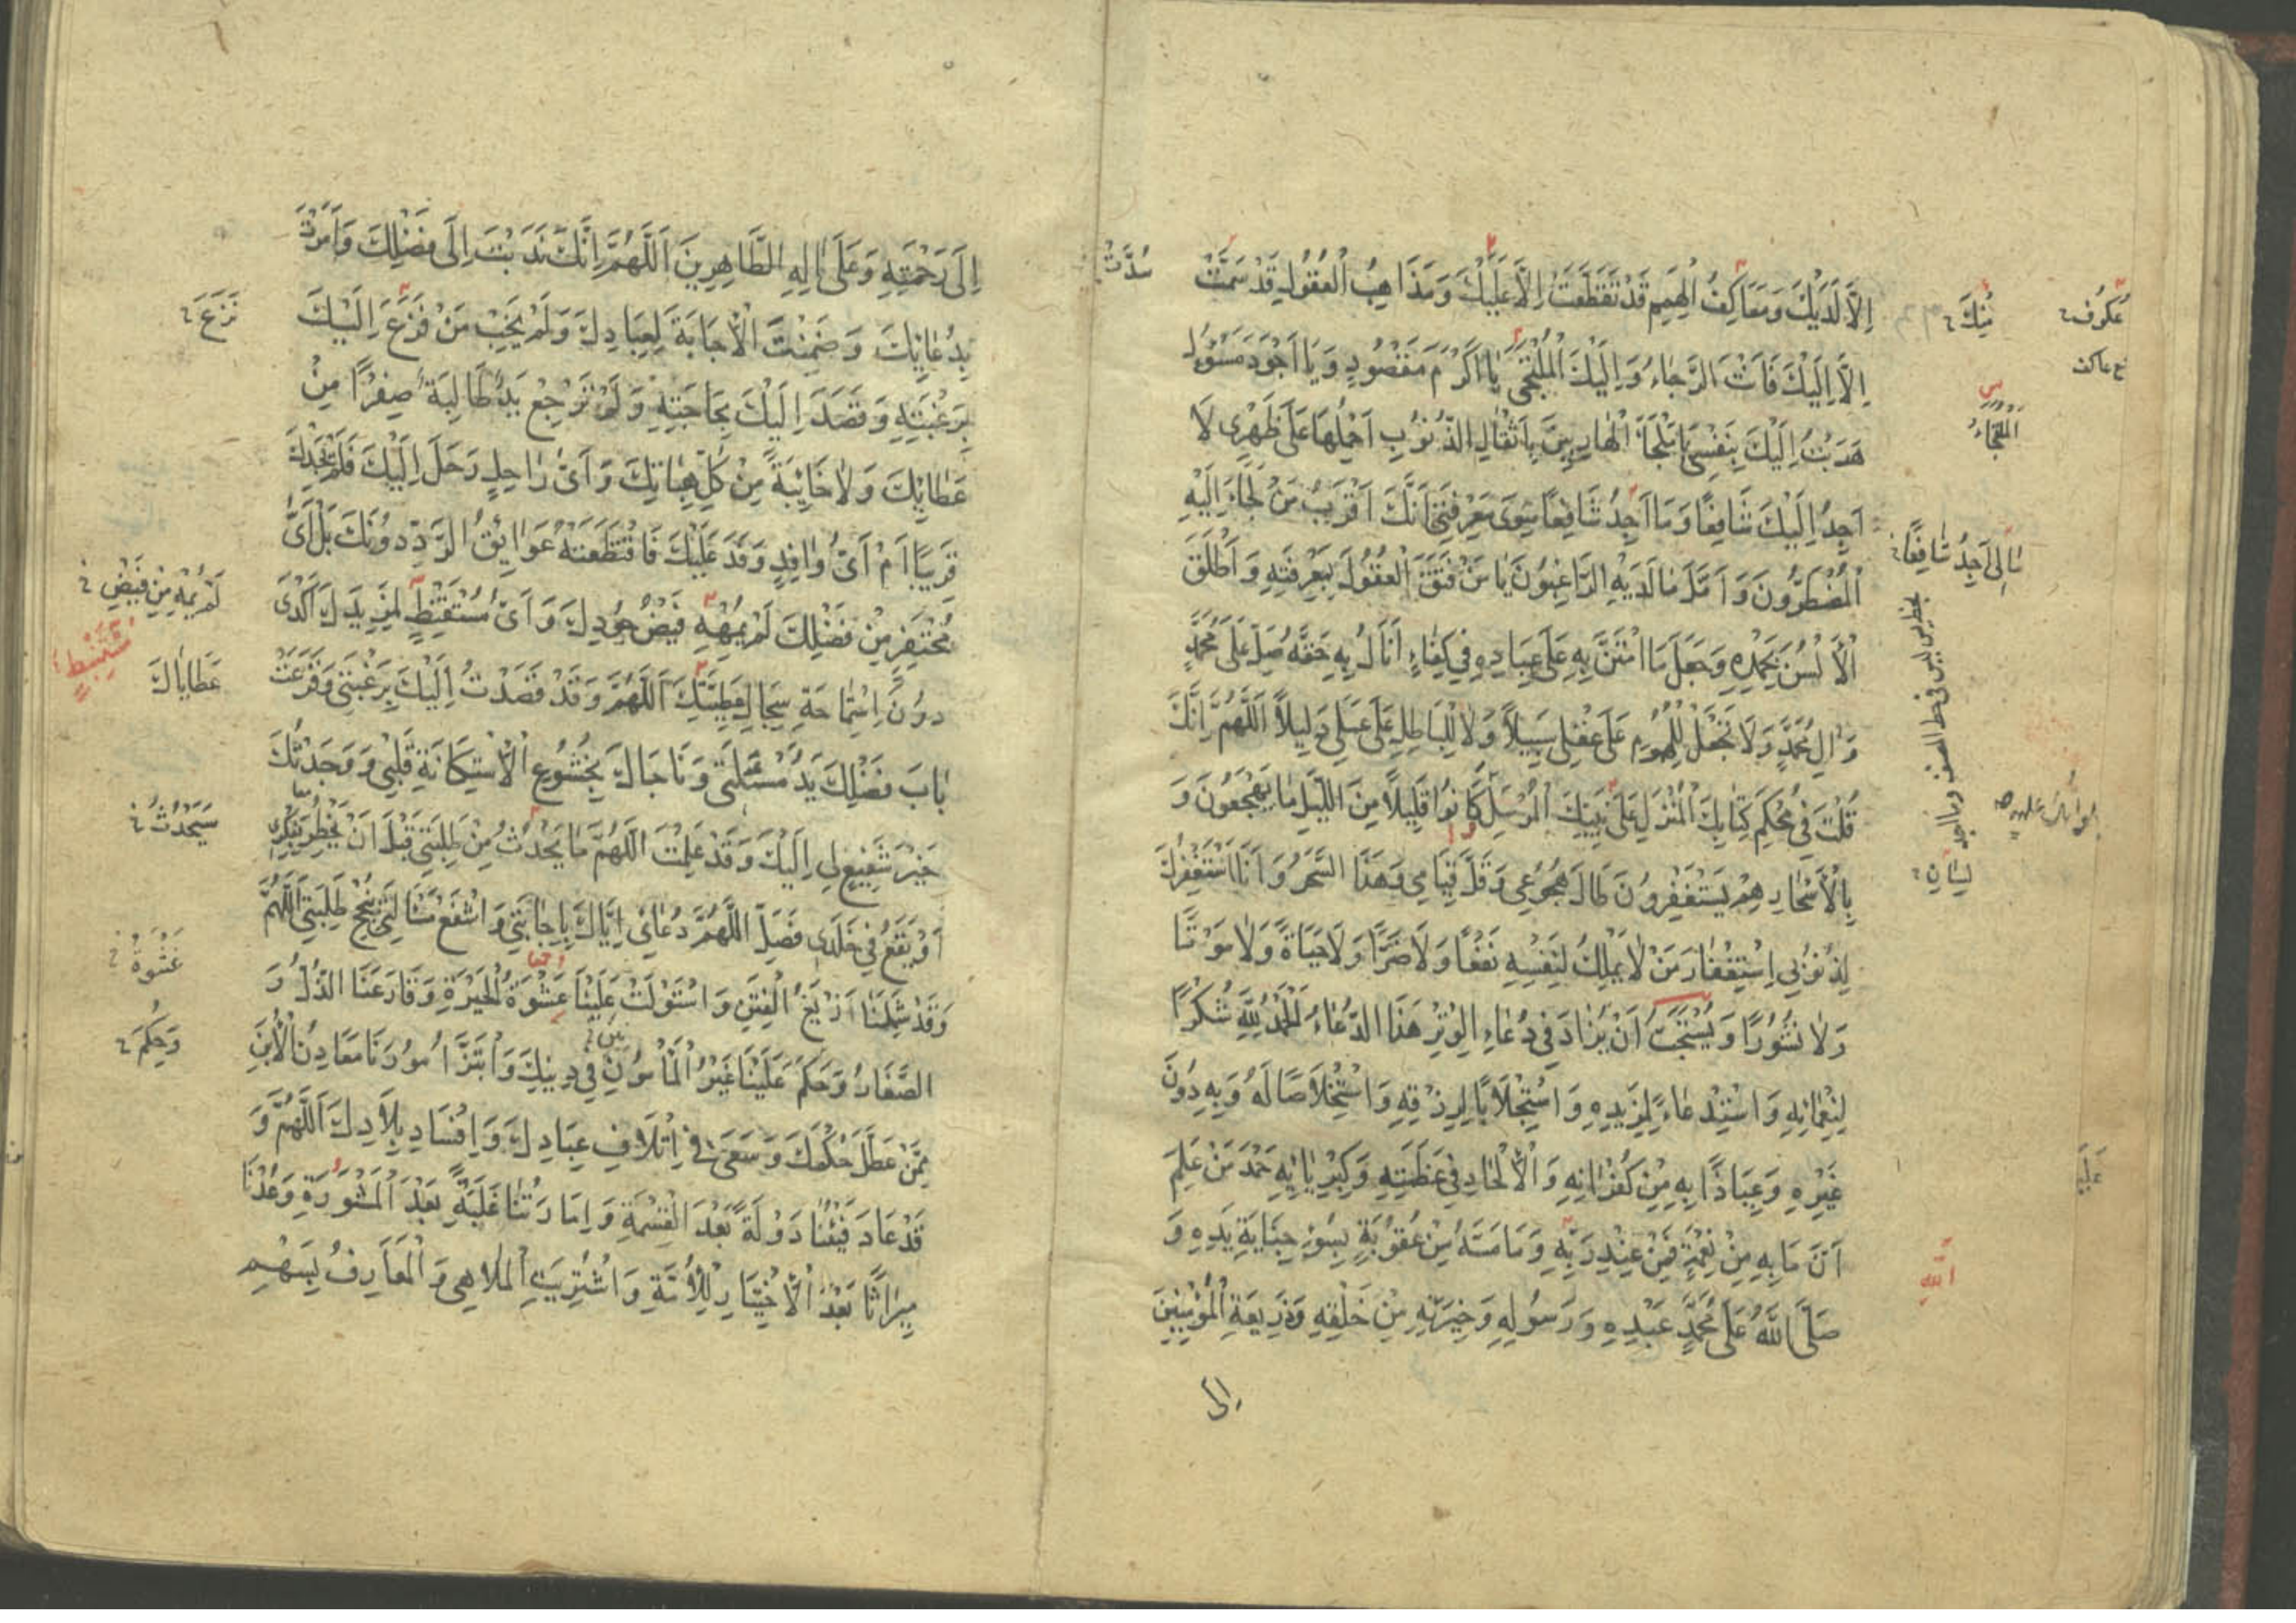 اِلَّا لَدَيْكَ وَمَعَاكِفُ الْهِمَمِ قَدْ تَقَطَّعَتْ اِلَّا عَلَيْكَ وَمَذَاهِبُ الْعُقُولِ قَدْ سَمَتْ
اِلَّا اِلَيْكَ فَاَنْتَ الرَّجَاءُ وَ اِلَيْكَ الْمُلْتَجَى يَا اَكْرَمَ مَقْصُودٍ وَ يَا اَجْوَدَ مَسْئُولٍ
هَرَبْتُ اِلَيْكَ بِنَفْسِي يَا مَلْجَاَ الْهَارِبِينَ بِاَثْقَالِ الذُّنُوبِ اَحْمِلُهَا عَلَى ظَهْرِى لَا
اَجِدُ اِلَيْكَ شَافِعًا وَ مَا اَجِدُ شَافِعًا سِوَى مَعْرِفَتِي اَنَّكَ اَقْرَبُ مَنْ لَجَاءَ اِلَيْهِ
الْمُضْطَرُّونَ وَ اَمَّلَ مَا لَدَيْهِ الرَّاغِبُونَ يَا مَنْ فَتَقَ الْعُقُولَ بِمَعْرِفَتِهِ وَ اَطْلَقَ
الْاَلْسُنَ بِحَمْدِهِ وَجَعَلَ مَا امْتَنَّ بِهِ عَلَى عِبَادِهِ فِي كِفَاءٍ اَنَالُ بِهِ حَقَّهُ صَلِّ عَلَى مُحَمَّدٍ
وَ الِ مُحَمَّدٍ وَ لَا تَجْعَلْ لِلْهُمُومِ عَلَى عَقْلِي سَبِيلًا وَ لَا لِلْبَاطِلِ عَلَى عَمَلِي دَلِيلًا اَللّٰهُمَّ اِنَّكَ
قُلْتَ فِي مُحْكَمِ كِتَابِكَ الْمُنْزَلِ عَلَى نَبِيِّكَ الْمُرْسَلِ كَانُوا قَلِيلًا مِنَ اللَّيْلِ مَا يَهْجَعُونَ وَ
بِالْاَسْحَارِ هُمْ يَسْتَغْفِرُونَ طَالَ هُجُوعِي وَ قَلَّ قِيَامِي وَ هَذَا السَّحَرُ وَ اَنَا اَسْتَغْفِرُكَ
لِذُنُوبِي اِسْتِغْفَارَ مَنْ لَا يَمْلِكُ لِنَفْسِهِ نَفْعًا وَ لَا ضَرًّا وَ لَا حَيَاةً وَ لَا مَوْتًا
وَ لَا نُشُورًا وَ يُسْتَحَبُّ اَنْ يُزَادَ فِي دُعَاءِ الْوِتْرِ هَذَا الدُّعَاءُ اَلْحَمْدُ لِلّٰهِ شُكْرًا
لِنَعْمَائِهِ وَ اسْتِدْعَاءً لِمَزِيدِهِ وَ اسْتِجْلَابًا لِرِزْقِهِ وَ اسْتِخْلَاصًا لَهُ وَ بِهِ دُونَ
غَيْرِهِ وَ عِيَاذًا بِهِ مِنْ كُفْرَانِهِ وَ الْاِلْحَادِ فِي عَظَمَتِهِ وَ كِبْرِيَائِهِ حَمْدَ مَنْ عَلِمَ
اَنَّ مَا بِهِ مِنْ نِعْمَةٍ فَمِنْ عِنْدِ رَبِّهِ وَ مَا مَسَّهُ مِنْ عُقُوبَةٍ بِسُوءِ جِنَايَةِ يَدِهِ وَ
صَلَّى اللّٰهُ عَلَى مُحَمَّدٍ عَبْدِهِ وَ رَسُولِهِ وَ خِيَرَتِهِ مِنْ خَلْقِهِ وَ ذَرِيعَةِ الْمُؤْمِنِينَ
الى
سُدَّتْ
عُكُوف
مِنْكَ
الْمُلْتَجَاءُ
مَا لِي اَجِدُ شَافِعًا
اِلَى رَحْمَتِهِ وَ عَلَى الِهِ الطَّاهِرِينَ اَللّٰهُمَّ اِنَّكَ نَدَبْتَ اِلَى فَضْلِكَ وَ اَمَرْتَ
بِدُعَائِكَ وَ ضَمِنْتَ الْاِجَابَةَ لِعِبَادِكَ وَ لَمْ يَخِبْ مَنْ فَزَعَ اِلَيْكَ
بِرَغْبَتِهِ وَ قَصَدَ اِلَيْكَ بِحَاجَتِهِ وَ لَمْ تَرْجِعْ يَدٌ طَالِبَةٌ صِفْرًا مِنْ
عَطَائِكَ وَ لَا خَائِبَةً مِنْ كُلِّ هِبَاتِكَ وَ اَىُّ رَاحِلٍ رَحَلَ اِلَيْكَ فَلَمْ يَجِدْكَ
قَرِيبًا اَمْ اَىُّ وَافِدٍ وَفَدَ عَلَيْكَ فَاقْتَطَعَتْهُ عَوَائِقُ الرَّدِّ دُونَكَ بَلْ اَىُّ
مُحْتَفِرٍ مِنْ فَضْلِكَ لَمْ يُمْهِهِ فَيْضُ جُودِكَ وَ اَىُّ مُسْتَنْبِطٍ لِمَزِيدِكَ اَكْدَى
دُونَ اِسْتِمَاحَةِ سِجَالِ عَطِيَّتِكَ اَللّٰهُمَّ وَ قَدْ قَصَدْتُ اِلَيْكَ بِرَغْبَتِي وَ قَرَعَتْ
بَابَ فَضْلِكَ يَدُ مَسْئَلَتِي وَ نَاجَاكَ بِخُشُوعِ الْاِسْتِكَانَةِ قَلْبِي وَ وَجَدْتُكَ
خَيْرَ شَفِيعٍ لِي اِلَيْكَ وَ قَدْ عَلِمْتَ اَللّٰهُمَّ مَا يَحْدُثُ مِنْ طَلِبَتِي قَبْلَ اَنْ يَخْطُرَ بِفِكْرِى
اَوْ يَقَعُ فِي خَلَدِى فَصِلِ اللّٰهُمَّ دُعَائِى اِيَّاكَ بِاِجَابَتِي وَ اشْفَعْ مَسْاَلَتِي بِنُجْحِ طَلِبَتِي اَللّٰهُمَّ
وَ قَدْ شَمِلَنَا زَيْغُ الْفِتَنِ وَ اسْتَوْلَتْ عَلَيْنَا عَشْوَةُ الْحَيْرَةِ وَ قَارَعَنَا الذُّلُّ وَ
الصَّغَارُ وَ حَكَمَ عَلَيْنَا غَيْرُ الْمَاْمُونِ فِي دِينِكَ وَ ابْتَزَّ اُمُورَنَا مَعَادِنُ الْاُبَنِ
مِمَّنْ عَطَّلَ حُكْمَكَ وَ سَعَى فِي اِتْلَافِ عِبَادِكَ وَ اِفْسَادِ بِلَادِكَ اَللّٰهُمَّ وَ
قَدْ عَادَ فَيْئُنَا دَوْلَةً بَعْدَ الْقِسْمَةِ وَ اِمَارَتُنَا غَلَبَةً بَعْدَ الْمَشْوَرَةِ وَ عُدْنَا
مِيرَاثًا بَعْدَ الْاِخْتِيَارِ لِلْاُمَّةِ وَ اشْتُرِيَتِ الْمَلَاهِي وَ الْمَعَازِفُ بِسَهْمِ
نَزَعَ
لَمْ يُمْهِ مِنْ فَيْضِ
مُسْتَنْبِطٍ
عَطَايَاكَ
سَيَحْدُثُ
غَشْوَةُ
وَ حِكَمَ